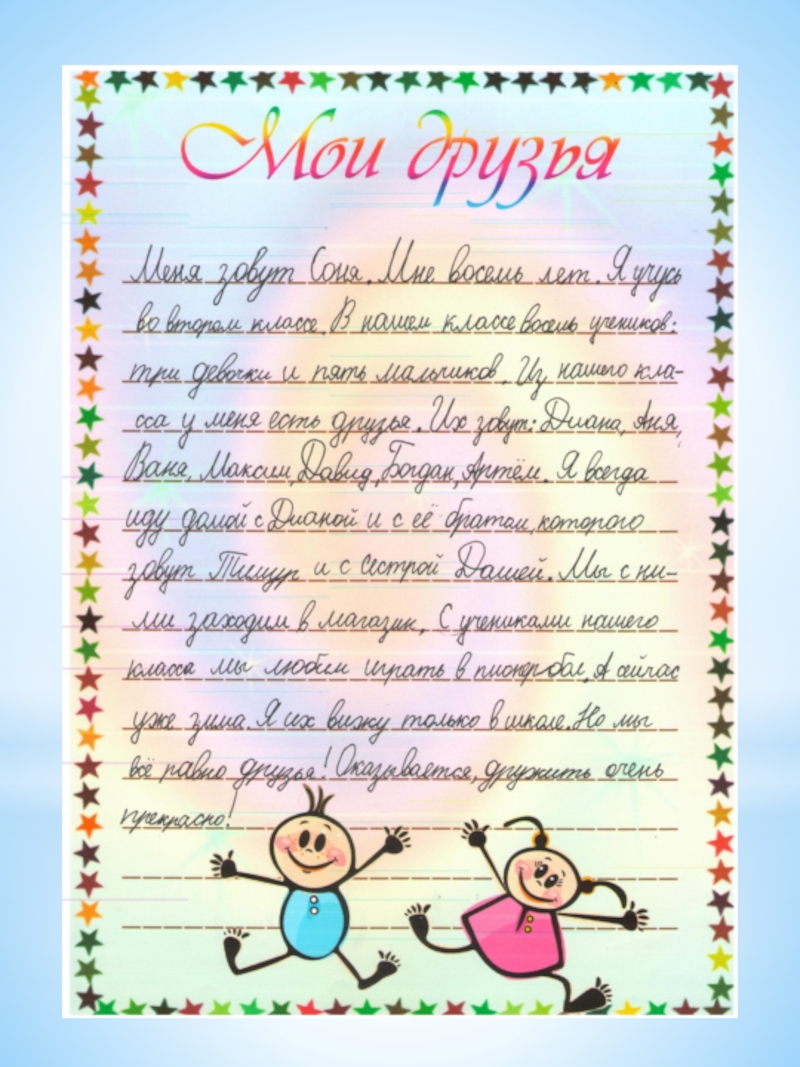 Мои друзья
Меня зовут Соня. Мне восемь лет. Я учусь
во втором классе. В нашем классе восемь учеников:
три девочки и пять мальчиков. Из нашего кла-
сса у меня есть друзья. Их зовут: Диана, Аня,
Ваня, Максим, Давид, Богдан, Артём. Я всегда
иду домой с Дианой и с её братом, которого
зовут Тимур и с сестрой Дашей. Мы с ни-
ми заходим в магазин. С учениками нашего
класса мы любим играть в пионербол. А сейчас
уже зима. Я их вижу только в школе. Но мы
всё равно друзья! Оказывается, дружить очень
прекрасно!